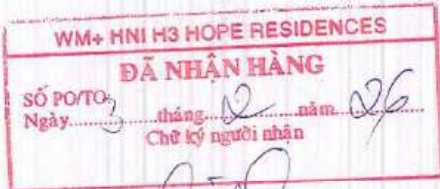 WM+ HNI H3 HOPE RESIDENCES
ĐÃ NHẬN HÀNG
SỐ PO/TO:
Ngày 3 tháng 2 năm 26
Chữ ký người nhận